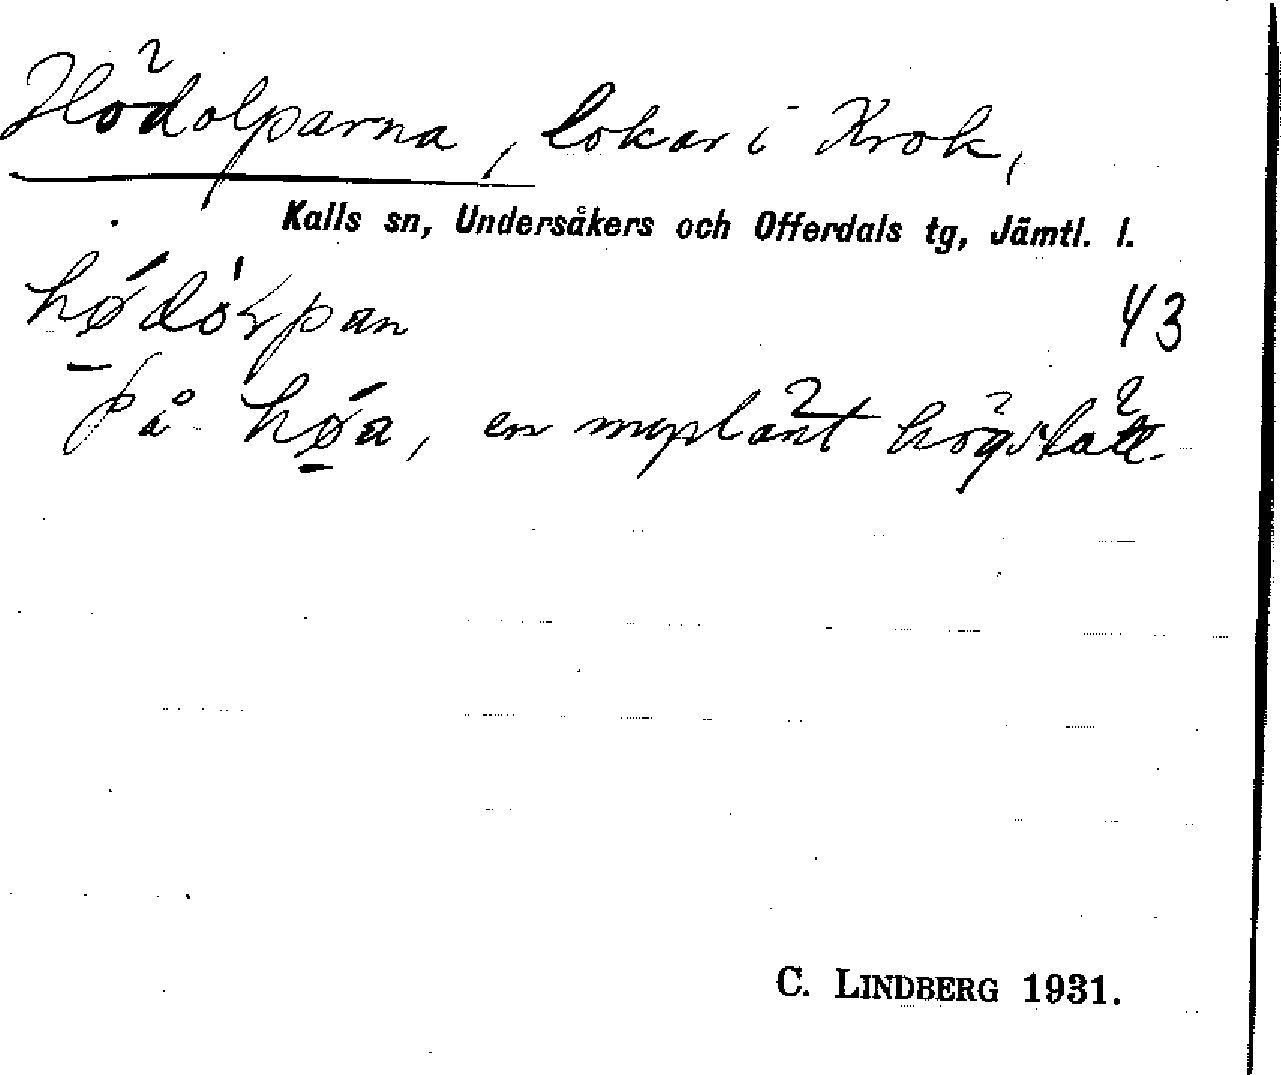 Hödolparna, lokar i Krok,
Kalls sn, Undersåkers och Offerdals tg, Jämtl. l.
43
på høa, en myslänt högslätt
C. LINDBERG 1931.